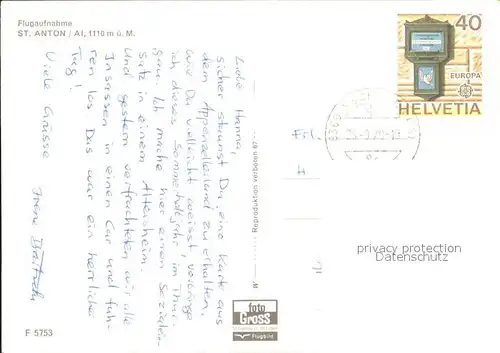 Flugaufnahme
ST. ANTON / AI, 1110 m ü. M.
Liebe Hanna,
sicher staunst Du, eine Karte aus
dem Appenzellerland zu erhalten.
Wie Du vielleicht weisst, verbringe
ich dieses Sommerhalbjahr im Thur-
gau. Ich mache hier einen Sozialein-
satz in einem Altersheim.
Und gestern verfrachteten wir alle
Insassen in einen Car und fuh-
ren los. Das war ein herrlicher
Tag!
Viele Grüsse
Irene
F 5753
Reproduktion verboten
foto
Gross
Flugbild
40
EUROPA
HELVETIA
Frl.
H
privacy protection
Datenschutz